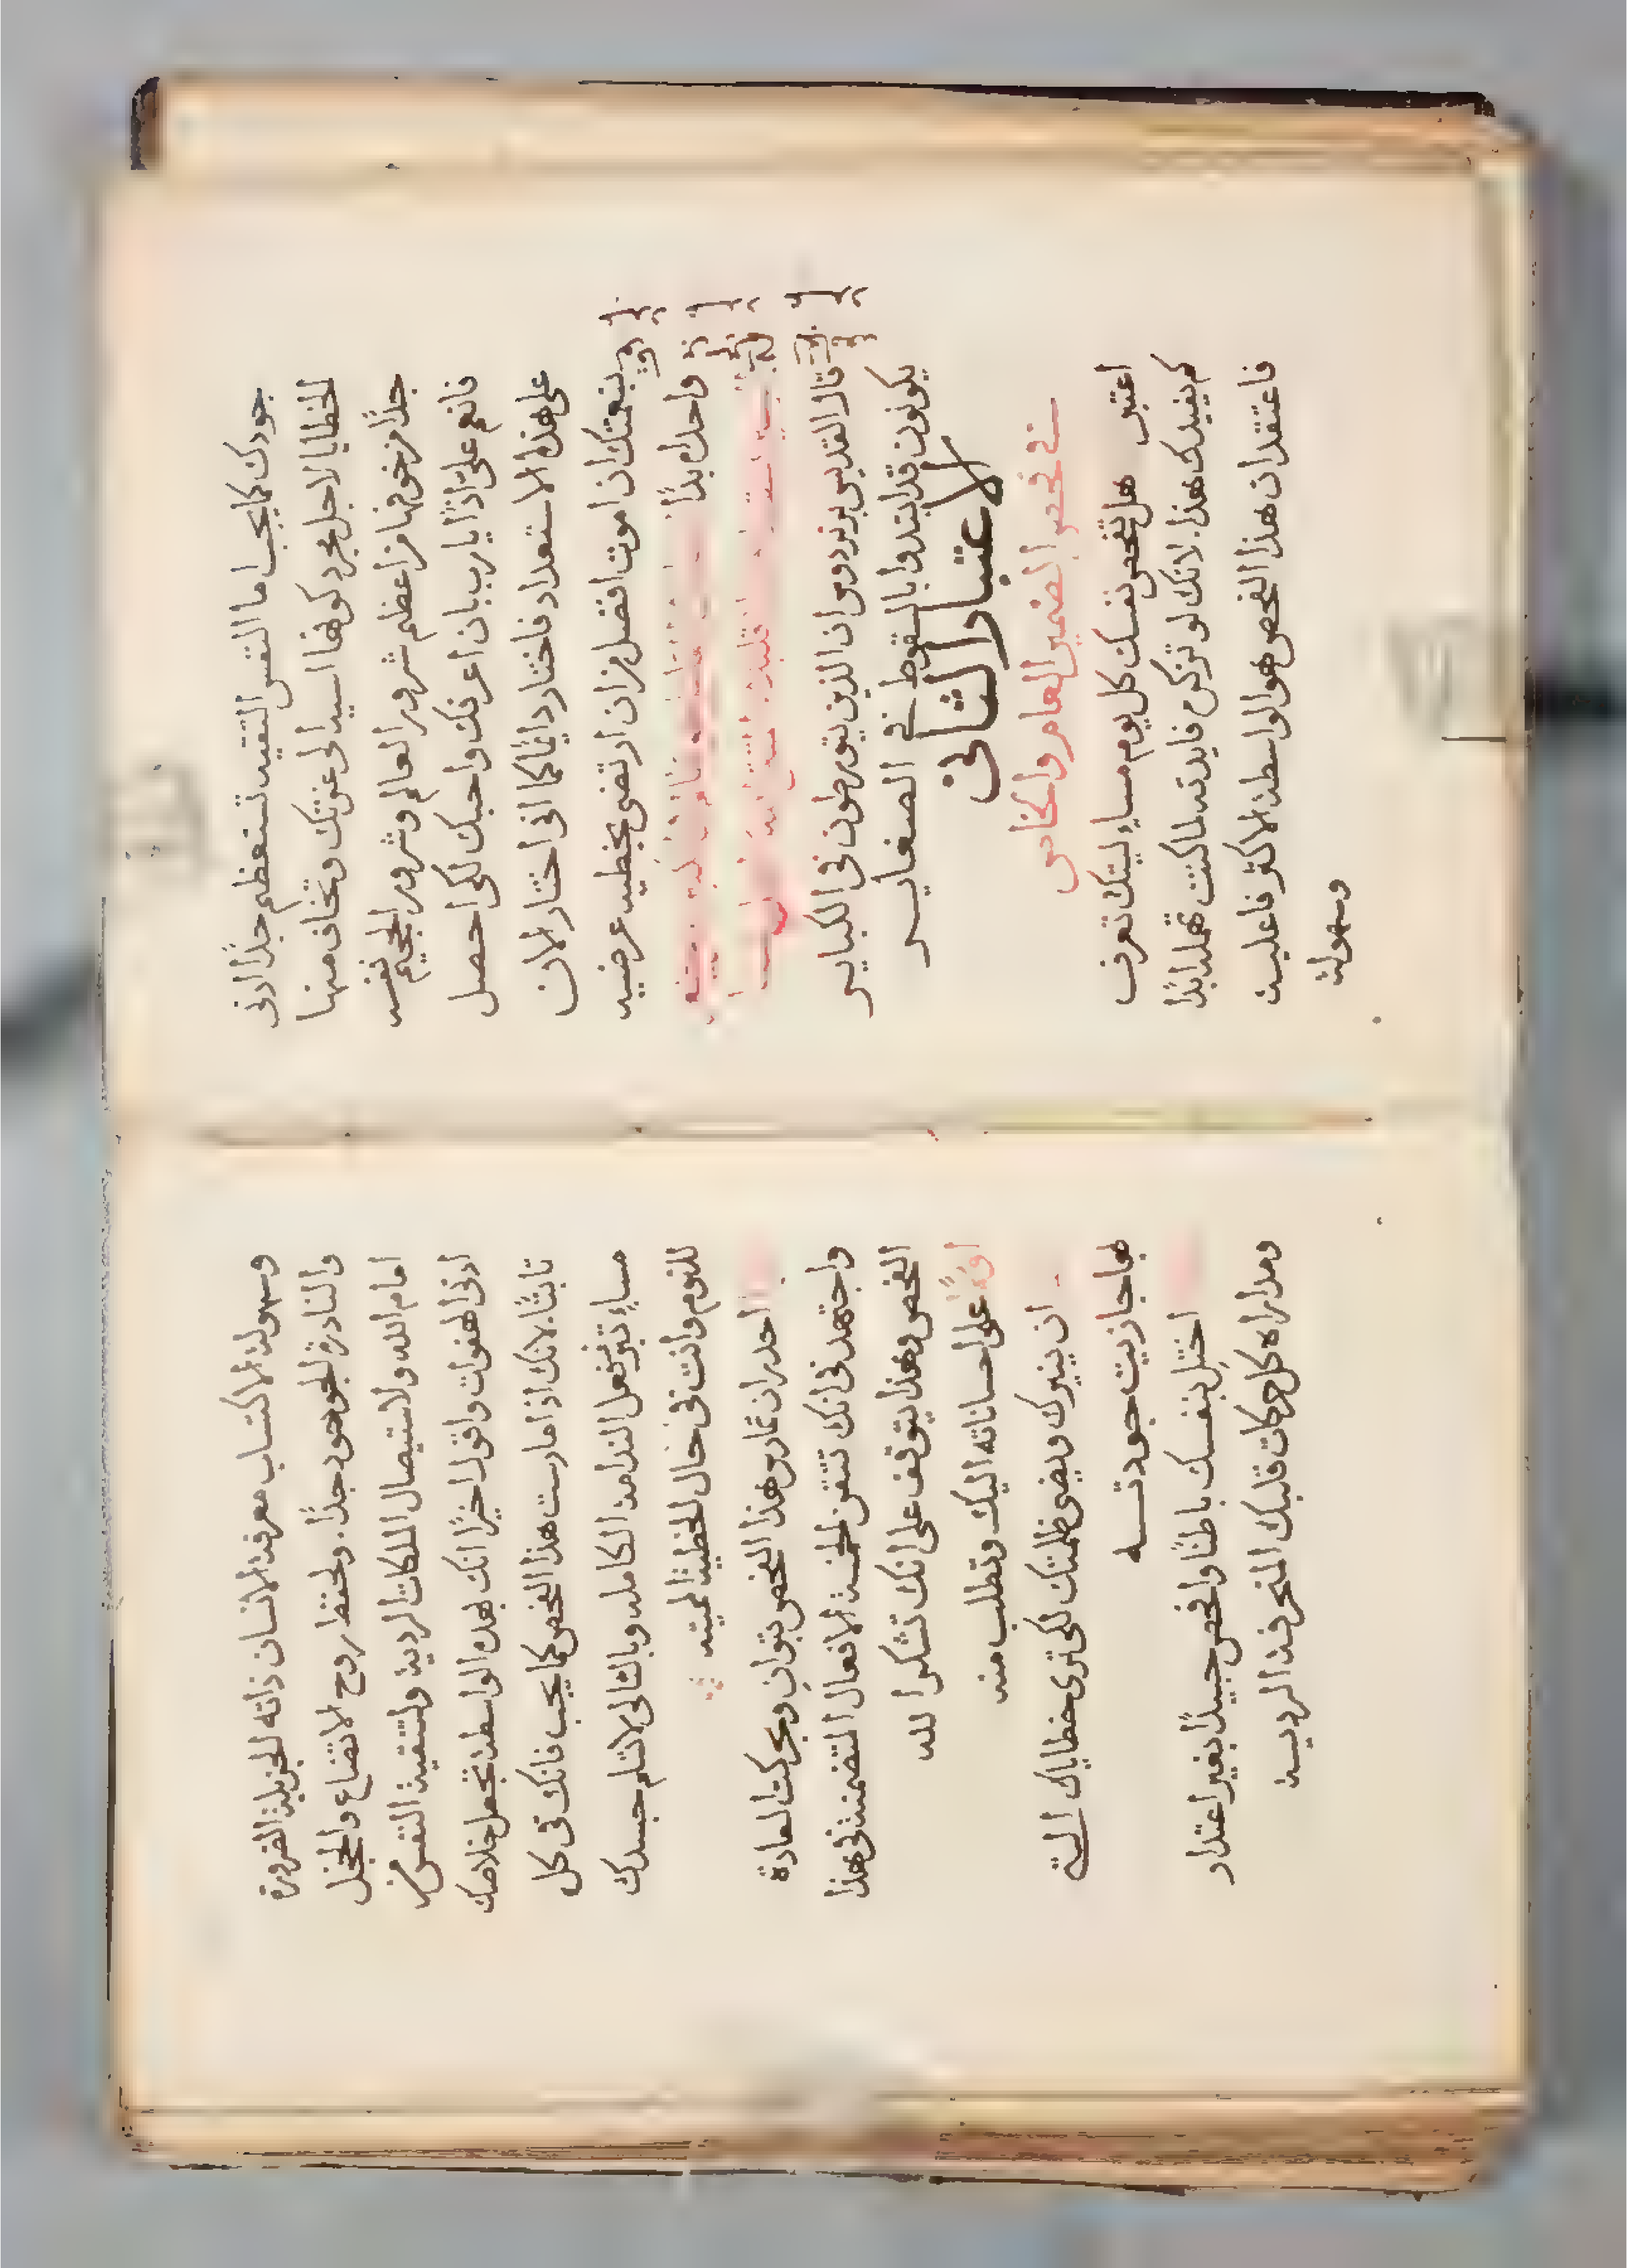 جودك كما يجب اما النفس التقيه تستعظم جدًا ادنى
الخطايا لاجل مجرد كونها اسيه الى عزتك وتخاف منها
جدًا من خوفها من اعظم شرور العالم وشرور الجحيم نفسه
فانعم على اذًا يارب بان اعرفك واحبك لكى احصل
على هذا الاستعداد فاختار دايمًا كما انى اختار الان
بنعمتك ان اموت افضل من ان ارتضى بخطيه عرضيه
واحده ابدًا
قال القديس برنردوس ان الذين يتورطون فى الكباير
يكونون قد ابتدوا بالسقوط فى الصغاير
الاعتبار الثانى
فى فحص الضمير العام والخاص
اعتبر هل تفحص نفسك كل يوم مساء ليتك تعرف
كم يفيدك هذا. لانك لو تزكن فايدته لما كنت تهمله ابدًا
فاعتقد ان هذا الفحص هو الواسطة الاكثر فاعلية
وسهولة
وسهولة لاكتساب معرفة الانسان ذاته الجزيلة الضرورة
والنادرة الوجود جدًا. ولحفظ روح الاتضاع والخجل
امام الله ولاستيصال الملكات الردية ولتنقية النفس من
ادنى الهفوات واقول اخيرًا انك بهذه الواسطة تجعل خلاصك
ثابتًا. لانك اذا مارست هذا الفحص كما يجب فانك فى كل
مساء تبرز فعل الندامة الكامله وبالتالى لا تسلم جسدك
للنوم وانت فى حال الخطية المميته
احذر ان تمارس هذا الفحص بتوانٍ وبحركت العادة
واجتهد فى انك تتقن الخمسة الافعال المتضمنة فى هذا
الفحص وهذا يتوقف على انك تشكر الله
اولًا على احساناته اليك وتطلب منه
ان ينيرك ويضى ظلمتك لكى ترى خطاياك التى
بها جازيت جودتـــه
اختل بنفسك باطنًا وافحص جيدًا بغير اعتدار
ومداراه كل حركات قلبك المنحرفة الرديـة